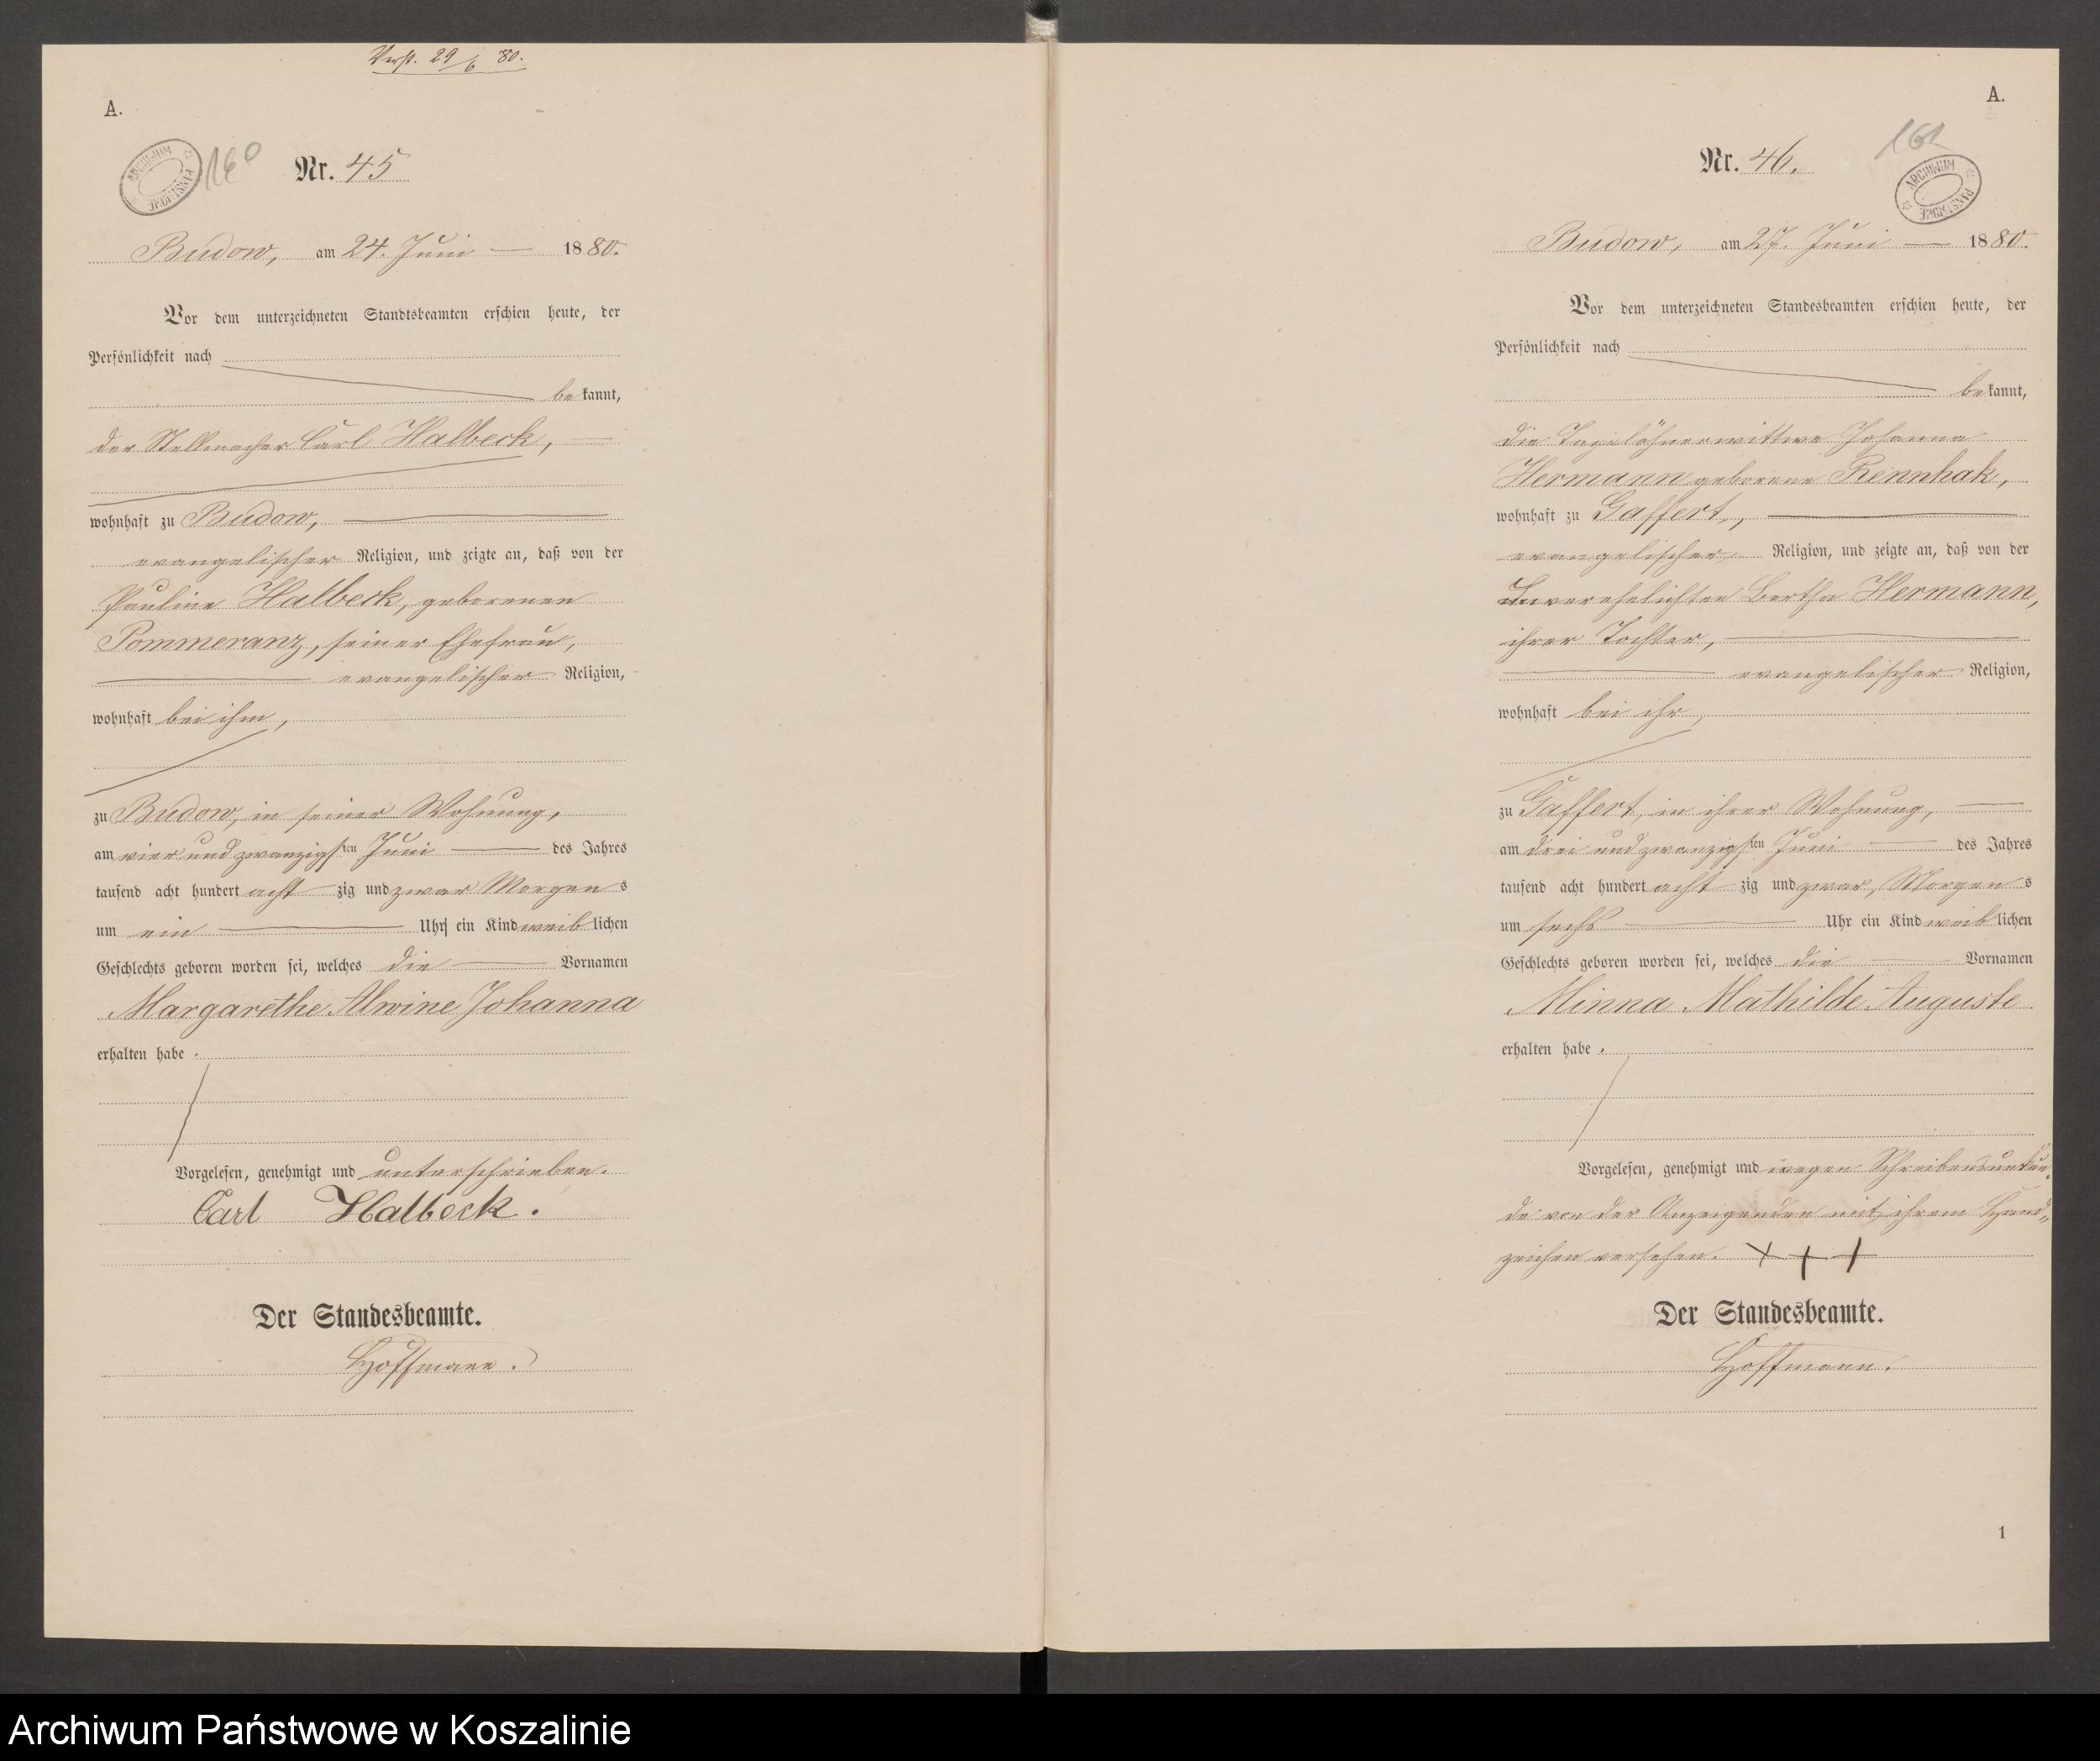 Verst. 29/6 80.
A.
ARCHIWUM PAŃSTWOWE
160
Nr. 45
Budow, am 24. Juni 1880.
Vor dem unterzeichneten Standtsbeamten erschien heute, der
Persönlichkeit nach
bekannt,
der Stellmacher Carl Halbeck,
wohnhaft zu Budow,
evangelischer Religion, und zeigte an, daß von der
Pauline Halbeck, geborenen
Pommeranz, seiner Ehefrau,
evangelischer Religion,
wohnhaft bei ihm,
zu Budow, in seiner Wohnung,
am vier und zwanzigsten Juni des Jahres
tausend acht hundert acht zig und zwar Morgens
um ein Uhr ein Kind weiblichen
Geschlechts geboren worden sei, welches die Vornamen
Margarethe Alwine Johanna
erhalten habe.
Vorgelesen, genehmigt und unterschrieben.
Carl Halbeck.
Der Standesbeamte.
Hoffmann.
A.
161
ARCHIWUM PAŃSTWOWE
Nr. 46.
Budow, am 27. Juni 1880.
Vor dem unterzeichneten Standesbeamten erschien heute, der
Persönlichkeit nach
bekannt,
die Tagelöhnerwittwe Johanna
Hermann geborene Rennhak,
wohnhaft zu Gaffert,
evangelischer Religion, und zeigte an, daß von der
unverehelichten Bertha Hermann,
ihrer Tochter,
evangelischer Religion,
wohnhaft bei ihr,
zu Gaffert, in ihrer Wohnung,
am drei und zwanzigsten Juni des Jahres
tausend acht hundert acht zig und zwar, Morgens
um sechs Uhr ein Kind weiblichen
Geschlechts geboren worden sei, welches die Vornamen
Minna Mathilde Auguste
erhalten habe.
Vorgelesen, genehmigt und wegen Schreibensunkun-
de von der Anzeigenden mit ihrem Hand-
zeichen versehen. + + +
Der Standesbeamte.
Hoffmann.
1
Archiwum Państwowe w Koszalinie